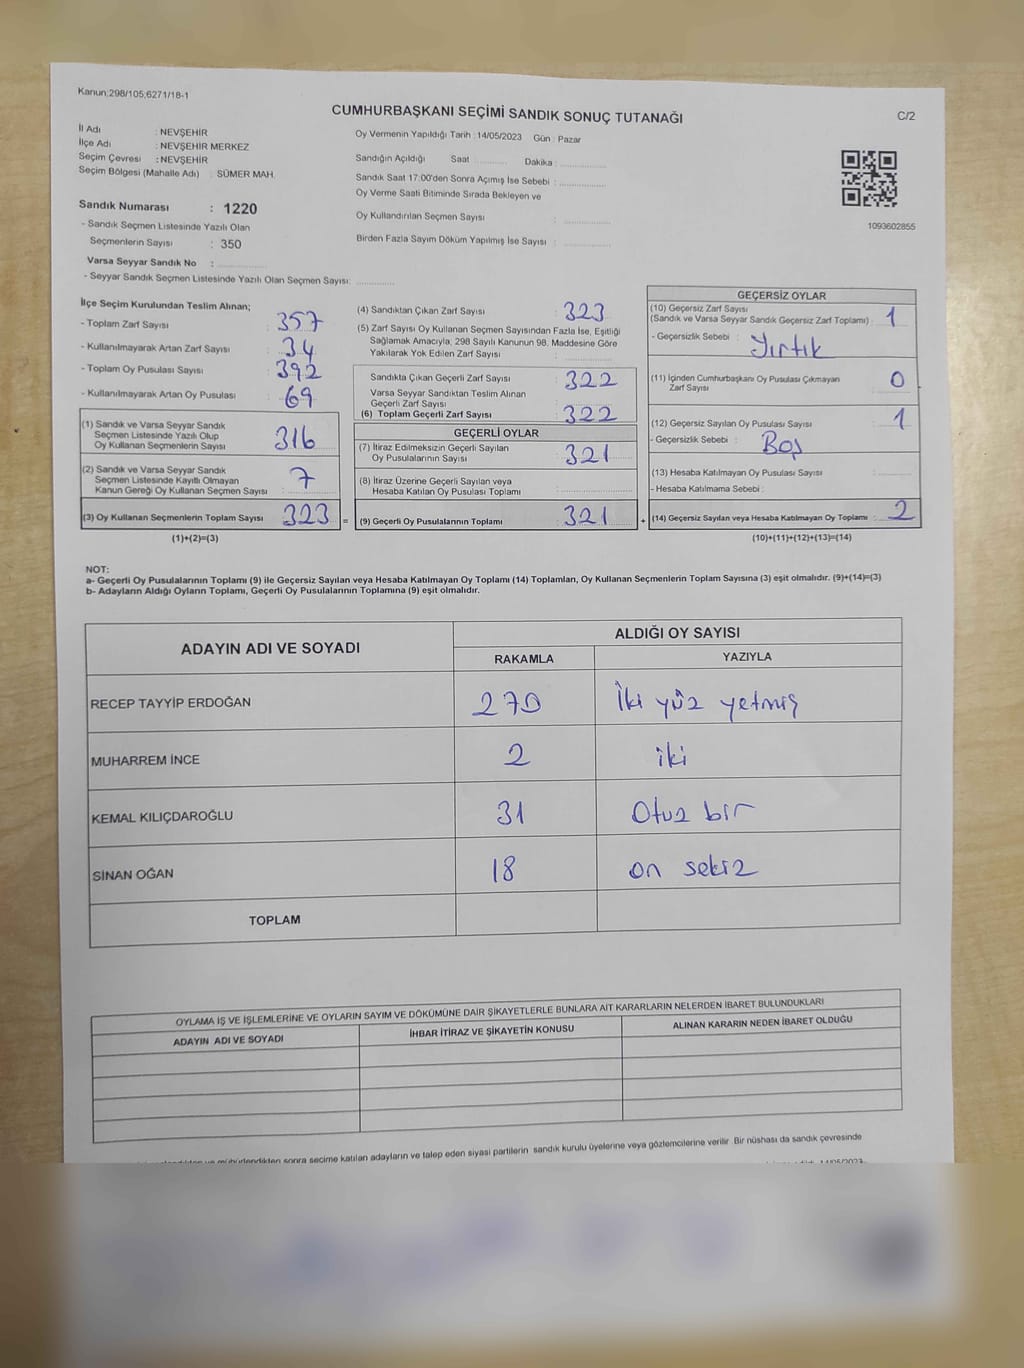 Kanun:298/105;6271/18-1
CUMHURBAŞKANI SEÇİMİ SANDIK SONUÇ TUTANAĞI
C/2
İl Adı : NEVŞEHİR
İlçe Adı : NEVŞEHİR MERKEZ
Seçim Çevresi : NEVŞEHİR
Seçim Bölgesi (Mahalle Adı) : SÜMER MAH.
Sandık Numarası : 1220
- Sandık Seçmen Listesinde Yazılı Olan
Seçmenlerin Sayısı : 350
Varsa Seyyar Sandık No :
- Seyyar Sandık Seçmen Listesinde Yazılı Olan Seçmen Sayısı:
Oy Vermenin Yapıldığı Tarih : 14/05/2023 Gün : Pazar
Sandığın Açıldığı Saat Dakika :
Sandık Saat 17:00'den Sonra Açımış İse Sebebi :
Oy Verme Saati Bitiminde Sırada Bekleyen ve
Oy Kullandırılan Seçmen Sayısı :
Birden Fazla Sayım Döküm Yapılmış İse Sayısı :
1093602855
İlçe Seçim Kurulundan Teslim Alınan;
- Toplam Zarf Sayısı : 357
- Kullanılmayarak Artan Zarf Sayısı : 34
- Toplam Oy Pusulası Sayısı : 392
- Kullanılmayarak Artan Oy Pusulası : 69
(1) Sandık ve Varsa Seyyar Sandık
Seçmen Listesinde Yazılı Olup
Oy Kullanan Seçmenlerin Sayısı 316
(2) Sandık ve Varsa Seyyar Sandık
Seçmen Listesinde Kayıtlı Olmayan
Kanun Gereği Oy Kullanan Seçmen Sayısı 7
(3) Oy Kullanan Seçmenlerin Toplam Sayısı 323 =
(1)+(2)=(3)
(4) Sandıktan Çıkan Zarf Sayısı : 323
(5) Zarf Sayısı Oy Kullanan Seçmen Sayısından Fazla İse, Eşitliği
Sağlamak Amacıyla, 298 Sayılı Kanunun 98. Maddesine Göre
Yakılarak Yok Edilen Zarf Sayısı :
Sandıkta Çıkan Geçerli Zarf Sayısı : 322
Varsa Seyyar Sandıktan Teslim Alınan
Geçerli Zarf Sayısı
(6) Toplam Geçerli Zarf Sayısı : 322
GEÇERLİ OYLAR
(7) İtiraz Edilmeksizin Geçerli Sayılan
Oy Pusulalarının Sayısı : 321
(8) İtiraz Üzerine Geçerli Sayılan veya
Hesaba Katılan Oy Pusulası Toplamı :
(9) Geçerli Oy Pusulalarının Toplamı : 321 +
GEÇERSİZ OYLAR
(10) Geçersiz Zarf Sayısı
(Sandık ve Varsa Seyyar Sandık Geçersiz Zarf Toplamı) : 1
- Geçersizlik Sebebi : Yırtık
(11) İçinden Cumhurbaşkanı Oy Pusulası Çıkmayan
Zarf Sayısı 0
(12) Geçersiz Sayılan Oy Pusulası Sayısı : 1
- Geçersizlik Sebebi : Boş
(13) Hesaba Katılmayan Oy Pusulası Sayısı :
- Hesaba Katılmama Sebebi :
(14) Geçersiz Sayılan veya Hesaba Katılmayan Oy Toplamı : 2
(10)+(11)+(12)+(13)=(14)
NOT:
a- Geçerli Oy Pusulalarının Toplamı (9) ile Geçersiz Sayılan veya Hesaba Katılmayan Oy Toplamı (14) Toplamları, Oy Kullanan Seçmenlerin Toplam Sayısına (3) eşit olmalıdır. (9)+(14)=(3)
b- Adayların Aldığı Oyların Toplamı, Geçerli Oy Pusulalarının Toplamına (9) eşit olmalıdır.
ADAYIN ADI VE SOYADI ALDIĞI OY SAYISI
RAKAMLA YAZIYLA
RECEP TAYYİP ERDOĞAN 270 İki yüz yetmiş
MUHARREM İNCE 2 iki
KEMAL KILIÇDAROĞLU 31 Otuz bir
SİNAN OĞAN 18 on sekiz
TOPLAM
OYLAMA İŞ VE İŞLEMLERİNE VE OYLARIN SAYIM VE DÖKÜMÜNE DAİR ŞİKAYETLERLE BUNLARA AİT KARARLARIN NELERDEN İBARET BULUNDUKLARI
ADAYIN ADI VE SOYADI İHBAR İTİRAZ VE ŞİKAYETİN KONUSU ALINAN KARARIN NEDEN İBARET OLDUĞU
sonra seçime katılan adayların ve talep eden siyasi partilerin sandık kurulu üyelerine veya gözlemcilerine verilir. Bir nüshası da sandık çevresinde